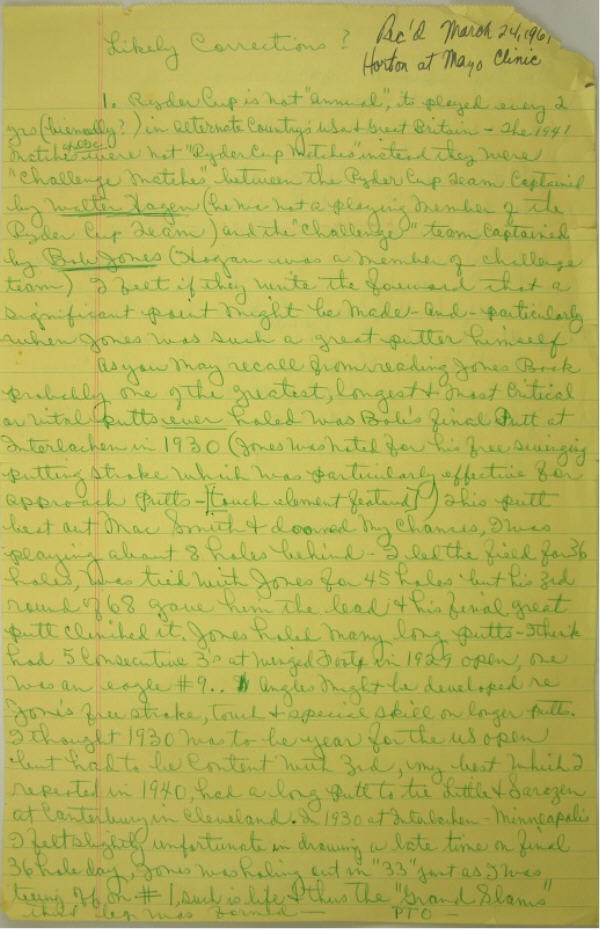 Likely Corrections?
Rec'd March 24, 1961
Horton at Mayo Clinic
1. Ryder Cup is not "annual", its played every 2
yrs (biennially?) in alternate Country's USA & Great Britain - The 1941
Matches were not "Ryder Cup Matches" instead they were
"Challenge Matches" between the Ryder Cup Team Captained
by Walter Hagen (he was not a playing member of the
Ryder Cup Team) and the "Challenge" team Captained
by Bob Jones (Hogan was a member of challenge
team) I feel if they write the foreward that a
significant point might be made - and - particularly
when Jones was such a great putter himself
As you may recall from reading Jones Book
probably one of the greatest, longest & most critical
or vital putts ever holed was Bob's final putt at
Interlachen in 1930 (Jones was noted for his free swinging
putting stroke which was particularly effective for
approach putts - [touch element featured]) This putt
beat out Mac Smith & doomed my chances, I was
playing about 8 holes behind - I led the field for 36
holes, was tied with Jones for 45 holes but his 3rd
round of 68 gave him the lead & his final great
putt clinched it. Jones holed many long putts - I think
had 5 consecutive 3's at Winged Foot in 1929 open, one
was an eagle #9.. Angles might be developed re
Jones free stroke, touch & special skill on longer putts.
I thought 1930 was to be year for the US open
but had to be content with 3rd, my best which I
repeated in 1940, had a long putt to tie Little & Sarazen
at Canterbury in Cleveland. In 1930 at Interlachen - Minneapolis
I felt slightly unfortunate in drawing a late time on final
36 hole day, Jones was holing out in "33" just as I was
teeing off on #1, such is life & thus the "Grand Slams"
leg was formed - PTO -